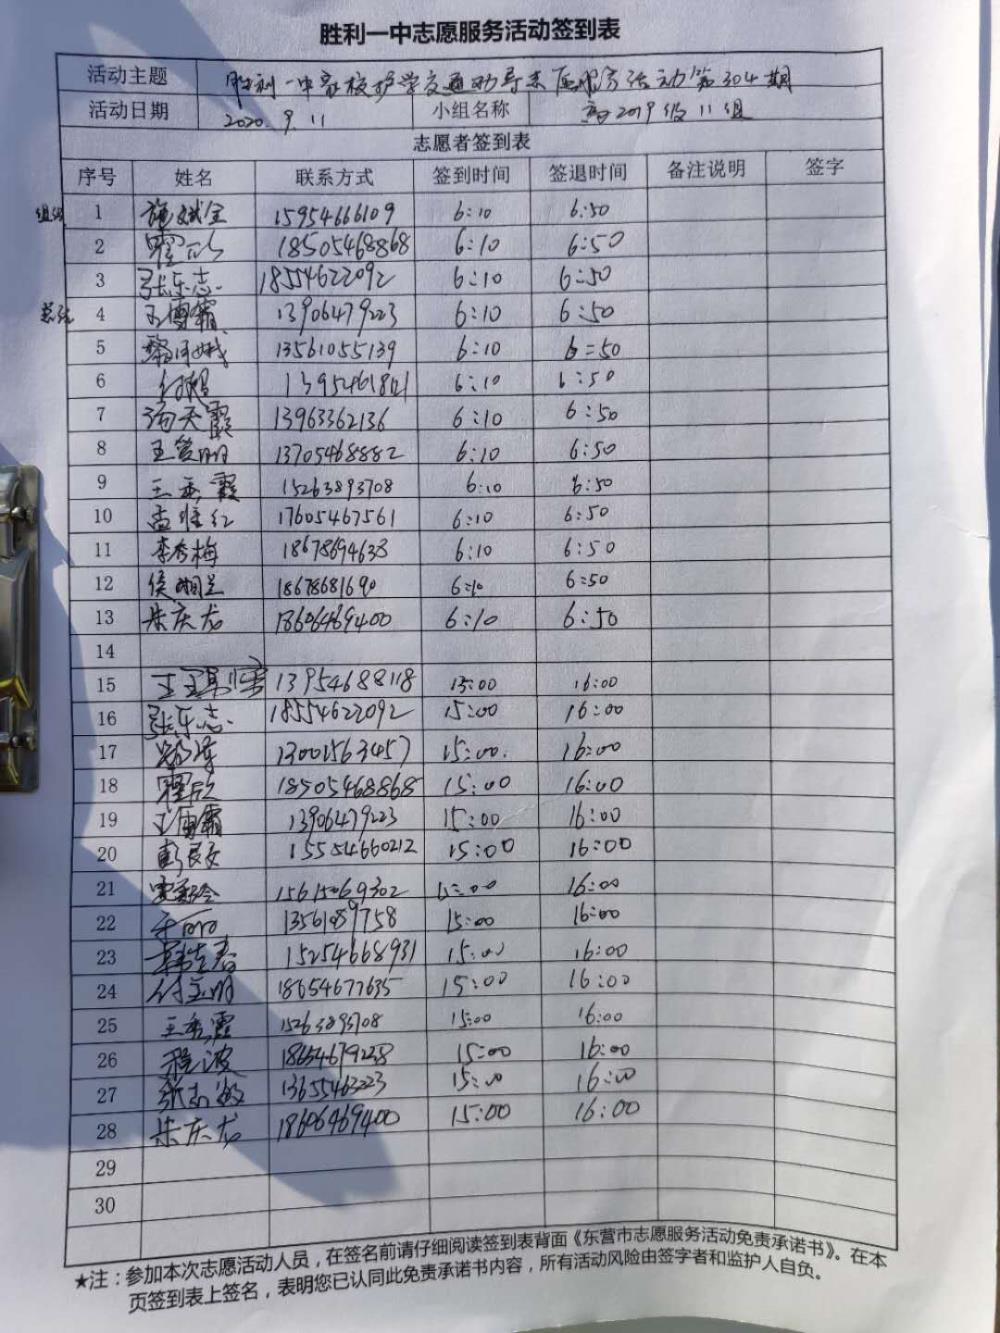 胜利一中志愿服务活动签到表
活动主题 胜利一中家校护学交通劝导志愿服务活动第304期
活动日期 2020.9.11 小组名称 高2019级11组
志愿者签到表
序号 姓名 联系方式 签到时间 签退时间 备注说明 签字
组长 1 施斌全 15954666109 6:10 6:50
2 翟欣 18505468868 6:10 6:50
3 张乐志 18554622092 6:10 6:50
总结 4 王博霸 13906479223 6:10 6:50
5 13561055139 6:10 6=50
6 6:10 6:50
7 汤天霞 13963362136 6:10 6:50
8 王笑丽 13705468882 6:10 6:50
9 王秀霞 15263893708 6:10 6:50
10 孟维红 17605467561 6:10 6:50
11 李秀梅 18678694638 6:10 6:50
12 侯湘兰 18678681690 6:10 6:50
13 朱庆龙 18606469400 6:10 6:50
14
15 13954688118 15:00 16:00
16 张乐志 18554622092 15:00 16:00
17 13001563457 15:00 16:00
18 翟欣 18505468868 15:00 16:00
19 王博霸 13906479223 15:00 16:00
20 彭良文 15554660212 15:00 16:00
21 15615069302 15:00 16:00
22 于丽 15:00 16:00
23 15254668931 15:00 16:00
24 付立明 18654677635 15:00 16:00
25 王秀霞 15263893708 15:00 16:00
26 程波 18654679238 15:00 16:00
27 15:00 16:00
28 朱庆龙 18606469400 15:00 16:00
29
30
★注：参加本次志愿活动人员，在签名前请仔细阅读签到表背面《东营市志愿服务活动免责承诺书》。在本
页签到表上签名，表明您已认同此免责承诺书内容，所有活动风险由签字者和监护人自负。